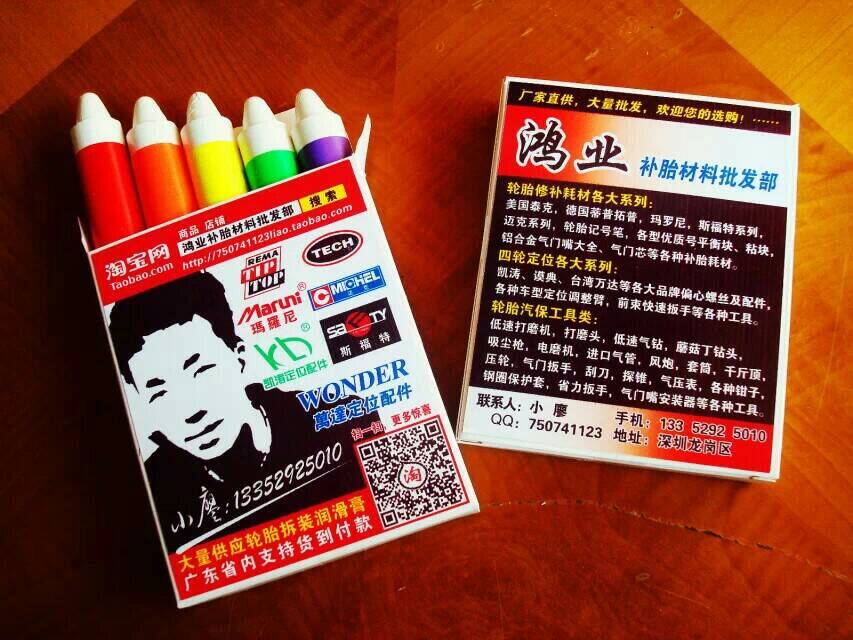 淘宝网
Taobao.com
商品 店铺
鸿业补胎材料批发部 搜索
http://750741123liao.taobao.com
REMA
TIP TOP
TECH
Maruni
瑪羅尼
MICHEL
SAFETY
斯福特
凯涛定位配件
WONDER
萬達定位配件
扫一扫，更多惊喜
淘
小廖:13352925010
大量供应轮胎拆装润滑膏
广东省内支持货到付款
厂家直供，大量批发，欢迎您的选购！......
鸿业 补胎材料批发部
轮胎修补耗材各大系列:
美国泰克，德国蒂普拓普，玛罗尼，斯福特系列，
迈克系列，轮胎记号笔，各型优质号平衡块、粘块，
铝合金气门嘴大全、气门芯等各种补胎耗材。
四轮定位各大系列:
凯涛、谟典、台湾万达等各大品牌偏心螺丝及配件，
各种车型定位调整臂，前束快速扳手等各种工具。
轮胎汽保工具类:
低速打磨机，打磨头，低速气钻，蘑菇丁钻头，
吸尘枪，电磨机，进口气管，风炮，套筒，千斤顶，
压轮，气门扳手，刮刀，探锥，气压表，各种钳子，
钢圈保护套，省力扳手，气门嘴安装器等各种工具。
联系人: 小 廖 手机: 133 5292 5010
QQ: 750741123 地址: 深圳龙岗区